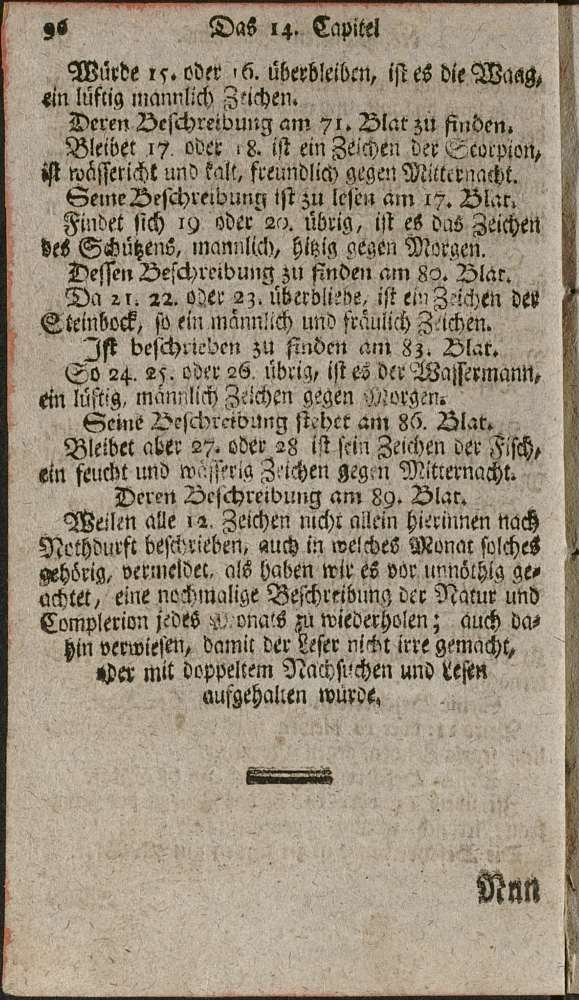 96 Das 14. Capitel
Würde 15. oder 16. überbleiben, ist es die Waag,
ein lüftig mannlich Zeichen.
Deren Beschreibung am 71. Blat zu finden.
Bleibet 17. oder 18. ist ein Zeichen der Scorpion,
ist wässericht und kalt, freundlich gegen Mitternacht.
Seine Beschreibung ist zu lesen am 17. Blat.
Findet sich 19 oder 20. übrig, ist es das Zeichen
des Schützens, mannlich, hitzig gegen Morgen.
Dessen Beschreibung zu finden am 80. Blat.
Da 21. 22. oder 23. überbliebe, ist ein Zeichen der
Steinbock, so ein männlich und fräulich Zeichen.
Ist beschrieben zu finden am 83. Blat.
So 24. 25. oder 26. übrig, ist es der Wassermann,
ein lüftig, männlich Zeichen gegen Morgen.
Seine Beschreibung stehet am 86. Blat.
Bleibet aber 27. oder 28 ist sein Zeichen der Fisch,
ein feucht und wässerig Zeichen gegen Mitternacht.
Deren Beschreibung am 89. Blat.
Weilen alle 12. Zeichen nicht allein hierinnen nach
Nothdurft beschrieben, auch in welches Monat solches
gehörig, vermeldet, als haben wir es vor unnöthig ge-
achtet, eine nochmalige Beschreibung der Natur und
Complexion jedes Monats zu wiederholen; auch da-
hin verwiesen, damit der Leser nicht irre gemacht,
oder mit doppeltem Nachsuchen und Lesen
aufgehalten würde.
Nun